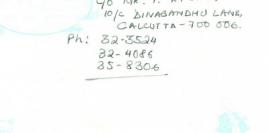 C/o
10/C DINABANDHU LANE,
CALCUTTA-700 006.
Ph: 32-3524
32-4086
35-8306